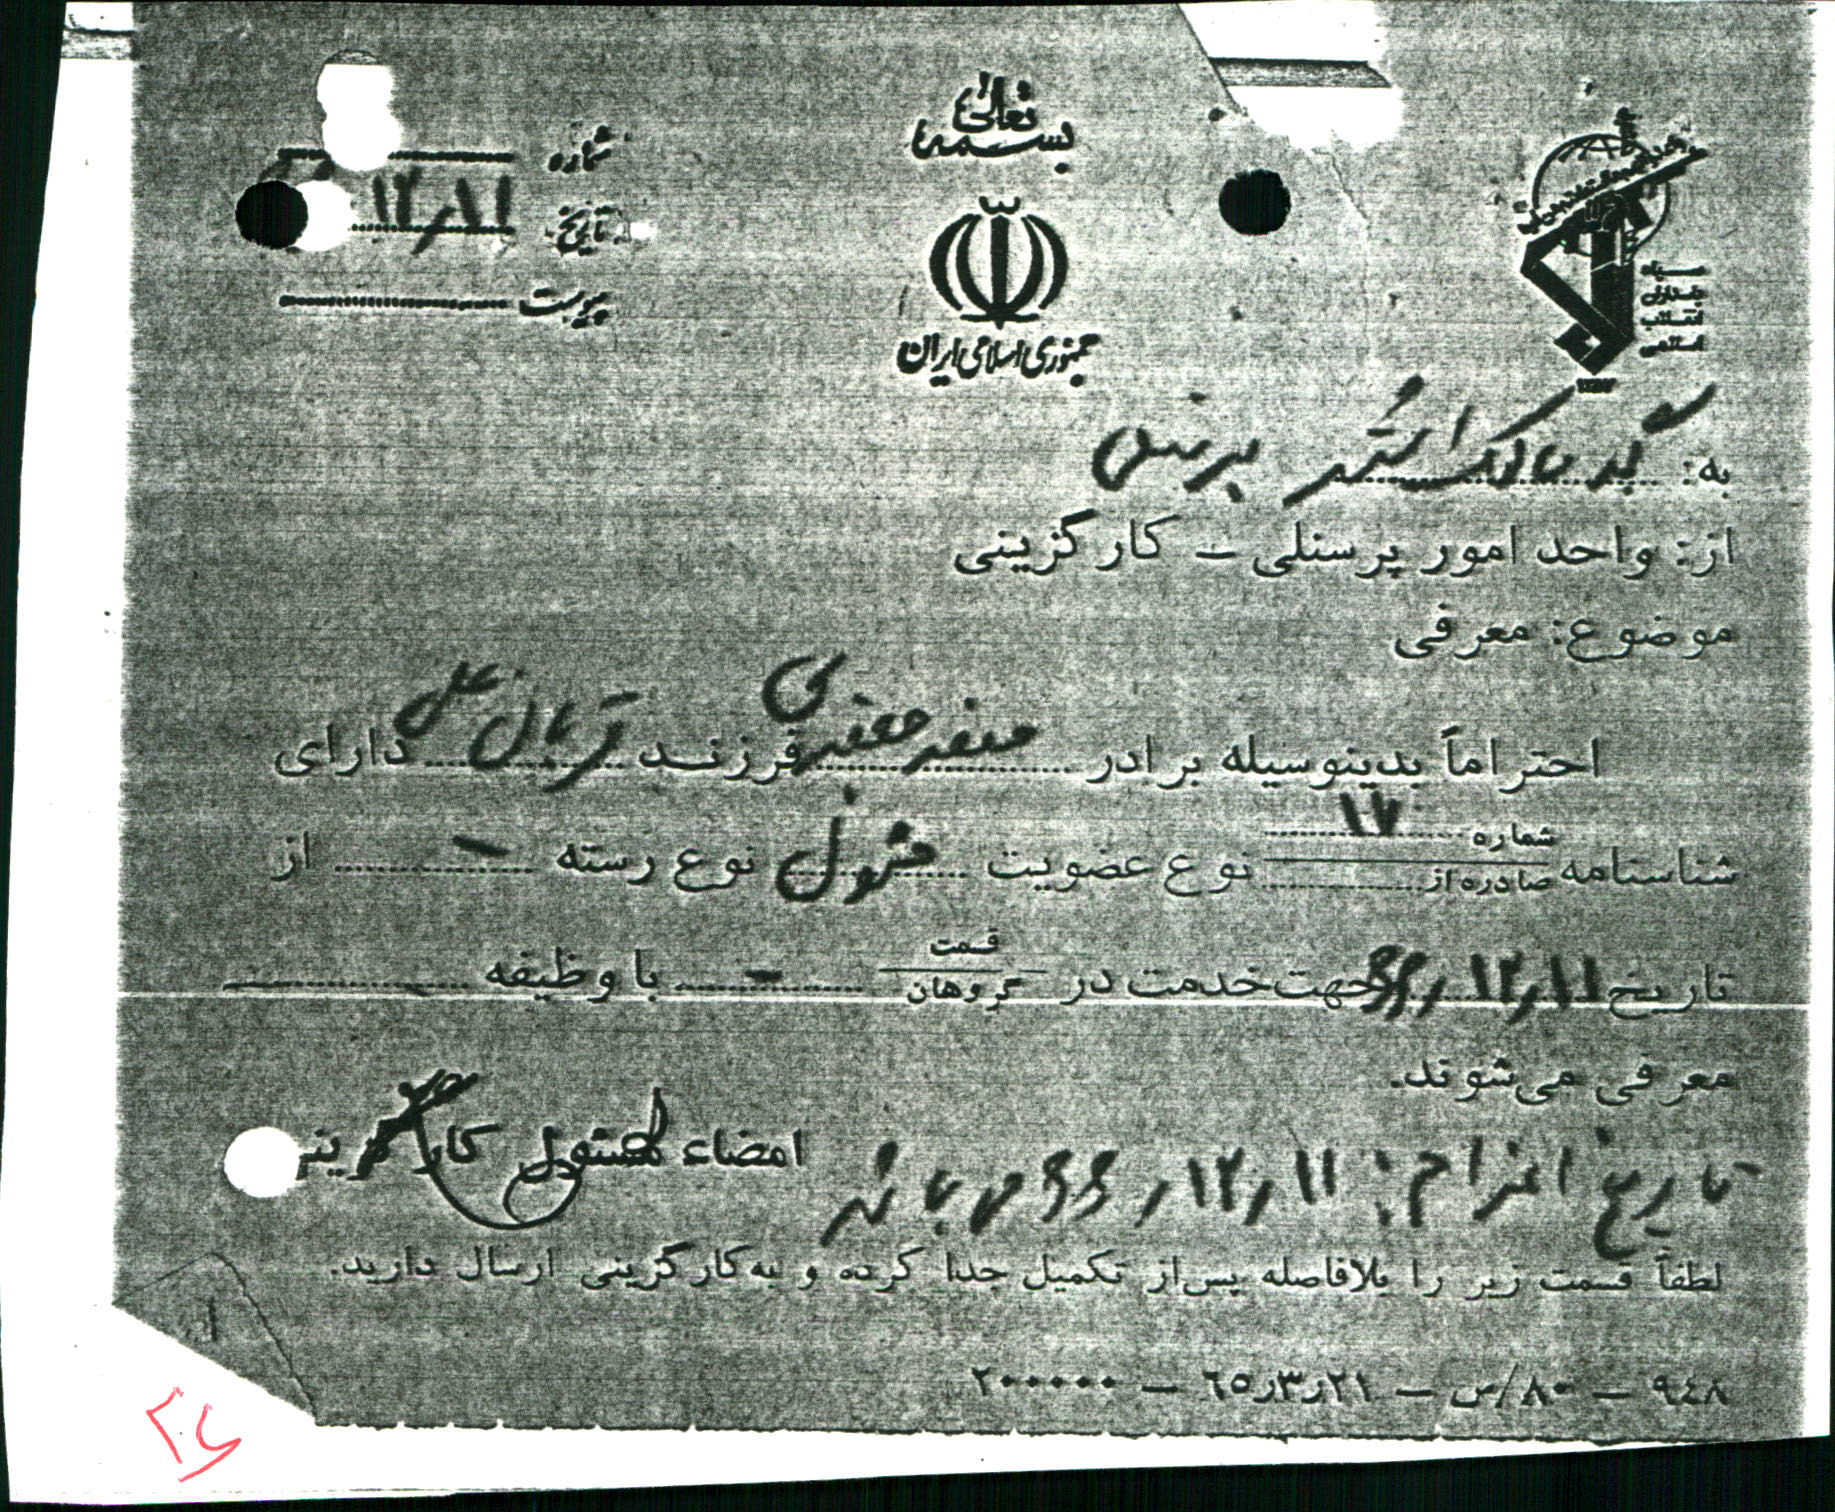 بسمه تعالی
جمهوری اسلامی ایران
سپاه
پاسداران
انقلاب
اسلامی
شماره
تاریخ ۱۲/۱۱
پیوست
به: مالک اشتر پرسنلی
از: واحد امور پرسنلی – کارگزینی
موضوع: معرفی
احتراماً بدینوسیله برادر صفدر جعفری فرزند قربان علی دارای
شناسنامه شماره ۱۷ صادره از نوع عضویت نوع رسته – از
تاریخ ۱۲/۱۱/۶۶ جهت خدمت در قسمت گروهان – با وظیفه
معرفی می‌شوند.
امضاء مسئول کارگزینی
تاریخ اعزام: ۱۲/۱۱/۶۶
لطفاً قسمت زیر را بلافاصله پس‌از تکمیل جدا کرده و به‌کارگزینی ارسال دارید.
۹٤۸ – ۸۰/س – ۲۱ر۳ر٦٥ – ۲۰۰۰۰۰۰
۲۶